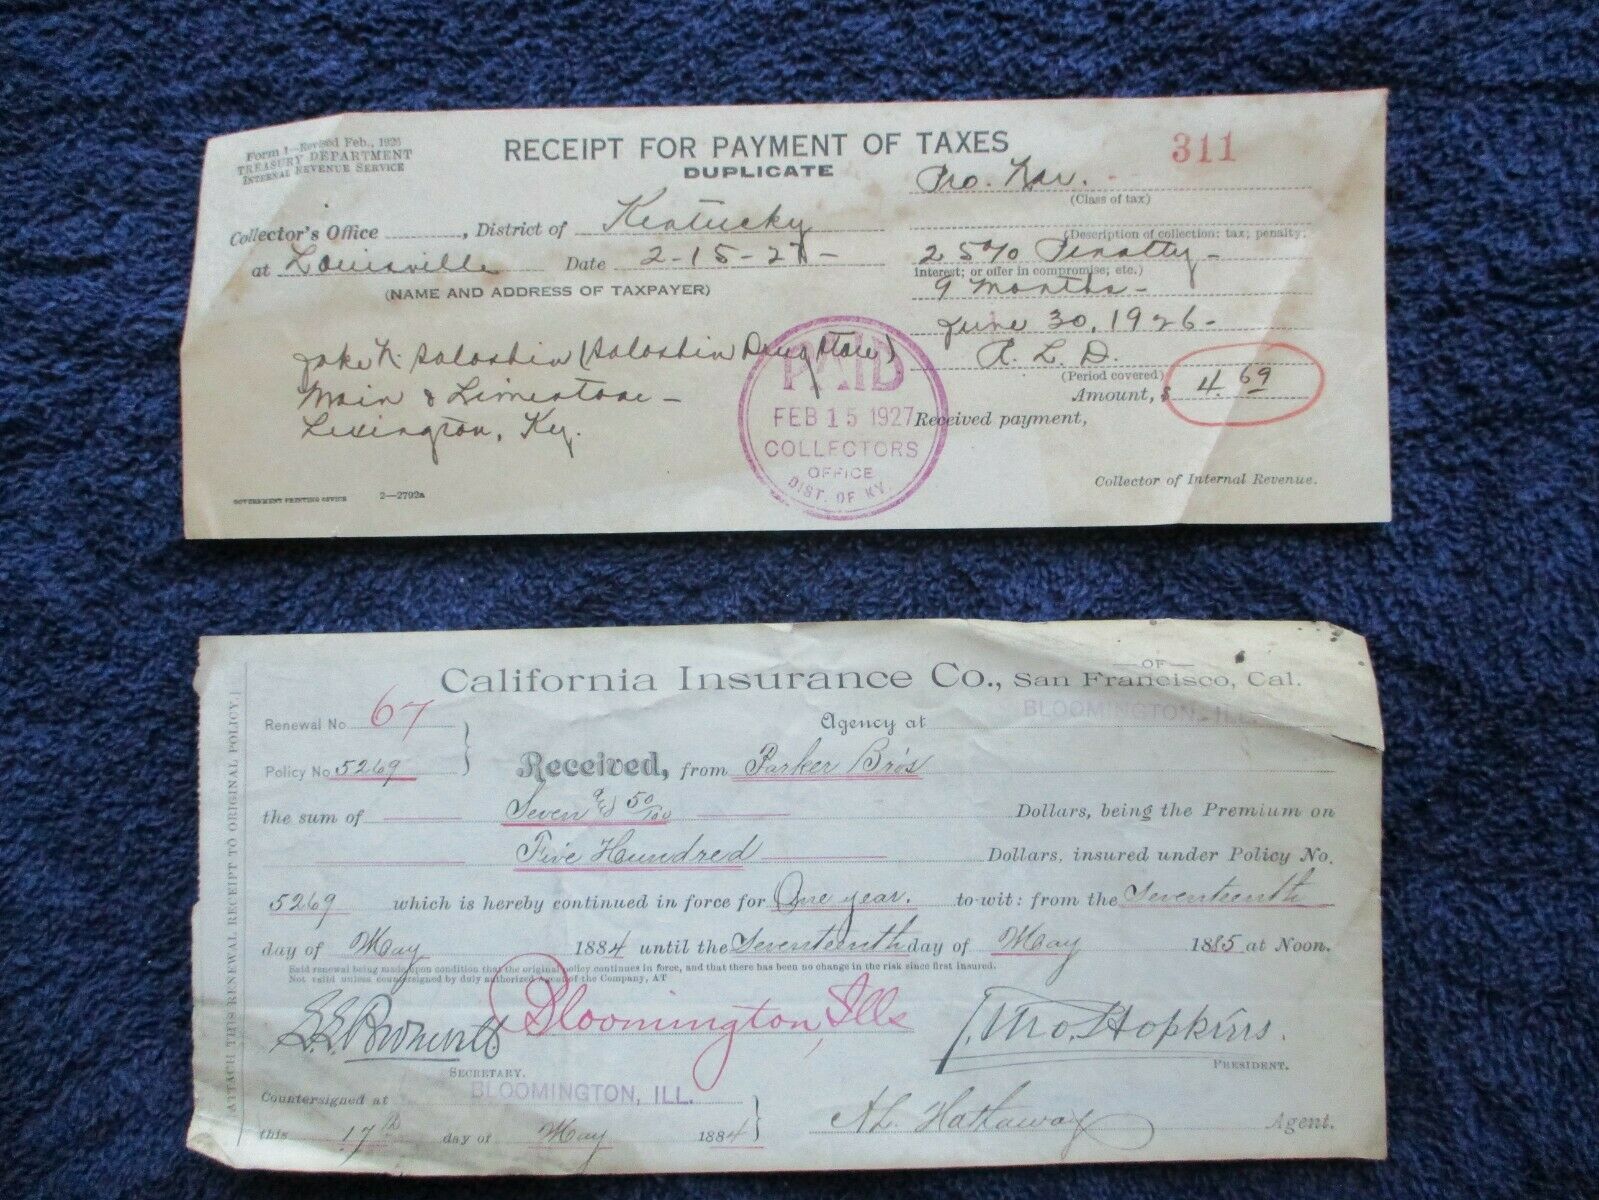 Form 1—Revised Feb., 1926
TREASURY DEPARTMENT
INTERNAL REVENUE SERVICE
RECEIPT FOR PAYMENT OF TAXES
DUPLICATE
311
Collector's Office , District of Kentucky
at Louisville Date 2-15-27-
(NAME AND ADDRESS OF TAXPAYER)
Jake N. (Drug Store)
Main & Limestone-
Lexington, Ky.
GOVERNMENT PRINTING OFFICE 2—2792a
PAID
FEB 15 1927
COLLECTORS
OFFICE
DIST. OF KY.
Pro. Nar.
(Class of tax)
(Description of collection: tax; penalty;
25% Penalty-
interest; or offer in compromise; etc.)
9 Months-
June 30, 1926-
L. D.
(Period covered)
Amount, $ 4.69
Received payment,
Collector of Internal Revenue.
ATTACH THIS RENEWAL RECEIPT TO ORIGINAL POLICY.
California Insurance Co., OF San Francisco, Cal.
Renewal No. 67
Agency at BLOOMINGTON, ILL.
Policy No. 5269
Received, from Parker Bro's
the sum of Seven & 50/100 Dollars, being the Premium on
Five Hundred Dollars, insured under Policy No.
5269 which is hereby continued in force for One year. to wit: from the Seventeenth
day of May 1884 until the Seventeenth day of May 1885 at Noon.
Said renewal being made upon condition that the original policy continues in force, and that there has been no change in the risk since first insured.
Not valid unless countersigned by duly authorized Agent of the Company, AT
Bloomington, Ills
Hopkins.
SECRETARY.
PRESIDENT.
Countersigned at BLOOMINGTON, ILL.
this 17th day of May 1884
Hathaway Agent.